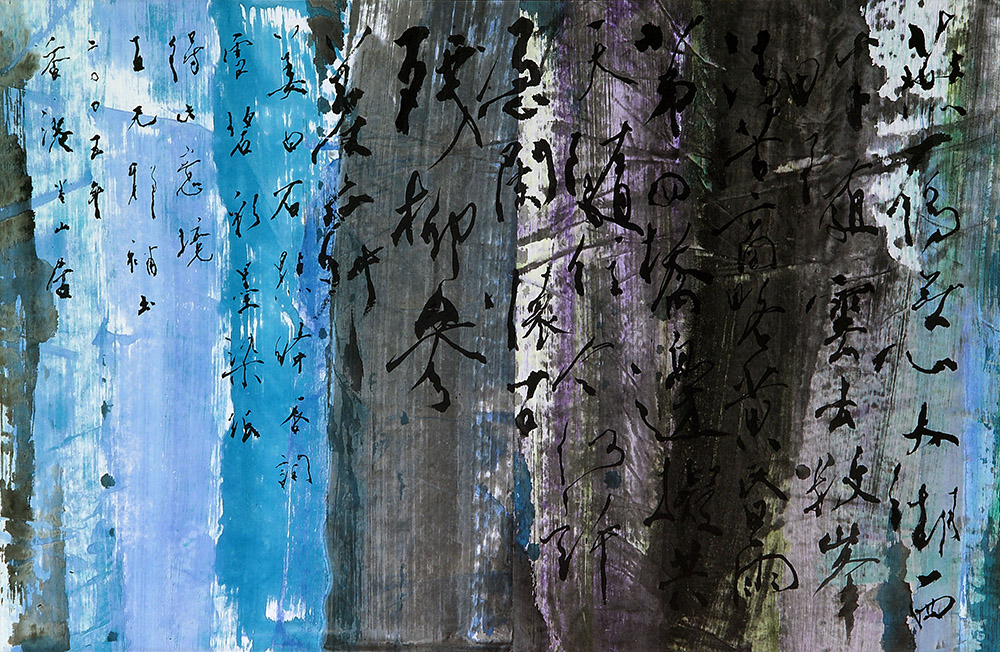 燕鴈無心太湖西
畔隨雲去數峯
清苦商略黃昏雨
第四橋邊擬共
天隨住今何許
憑闌懷古
殘柳參
差舞
以姜白石點絳唇詞
碧彩墨染紙
得此意境
王无邪補書
二〇〇五年
香港半山居